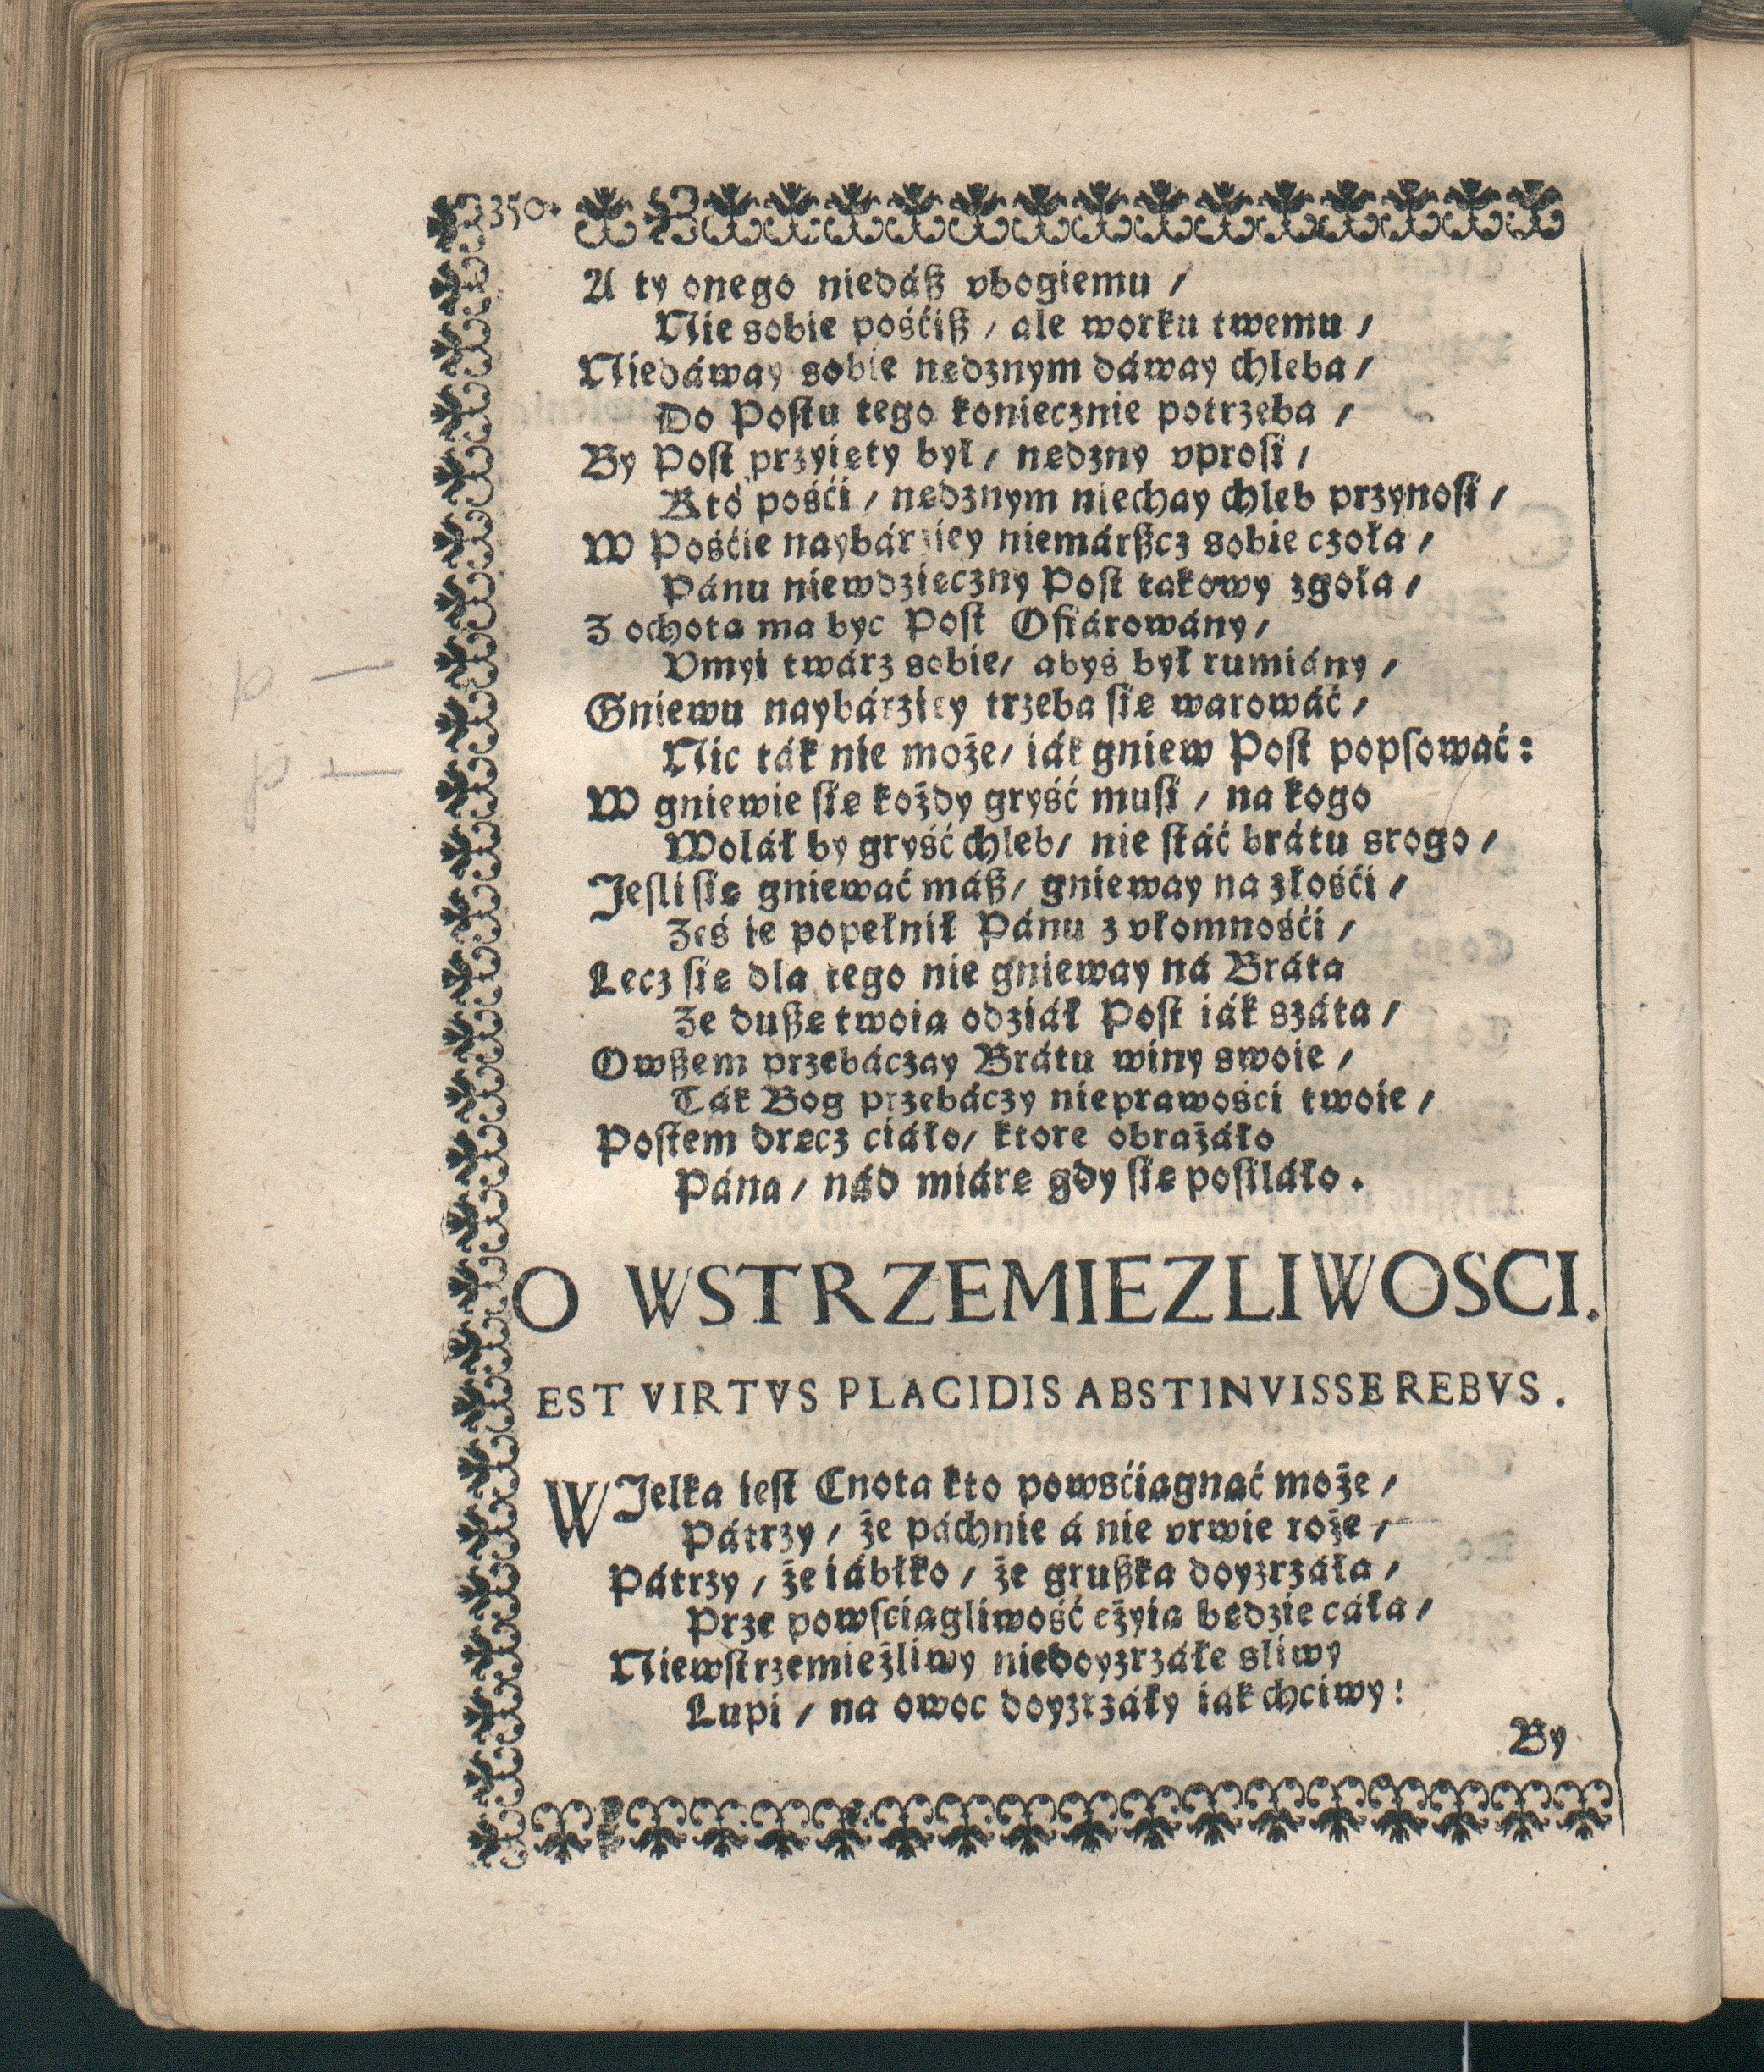 350.
A ty onego niedáß vbogiemu /
Nie sobie pośćiß / ale worku twemu /
Niedáway sobie nędznym dáway chleba /
Do Postu tego koniecznie potrzeba /
By Post przyięty był / nędzny vprosi /
Kto pośći / nędznym niechay chleb przynosi /
W Pośćie naybárziey niemárßcz sobie czoła /
Pánu niewdzięczny Post takowy zgoła /
Z ochotą ma byc Post Ofiárowány /
Vmyi twárz sobie / abyś był rumiány /
Gniewu naybárziey trzeba się warowáć /
Nic ták nie może / iák gniew Post popsować :
W gniewie się kożdy gryść musi / na kogo
Wolał by gryść chleb / nie stáć brátu srogo /
Jesli się gniewać máß / gnieway na złośći /
Ześ ie popełnił Pánu z vłomnośći /
Lecz się dla tego nie gnieway ná Bráta
Ze dußę twoię odział Post iák szátą /
Owßem przebáczay Brátu winy swoie /
Ták Bog przebáczy nieprawości twoie /
Postem dręcz ciáło / ktore obrażáło
Pána / nád miárę gdy się posiláło .
O WSTRZEMIEZLIWOSCI.
EST VIRTVS PLACIDIS ABSTINVISSE REBVS .
WJelka iest Cnota kto powśćiągnąć może /
Pátrzy / że páchnie á nie vrwie roże /
Pátrzy / że iábłko / że grußka doyzrzáła /
Prze powsciągliwość czyią będzie cáła /
Niewstrzemięźliwy niedoyzrzáłe sliwy
Łupi / na owoc doyzrzáły iak chciwy :
By
p —
p —